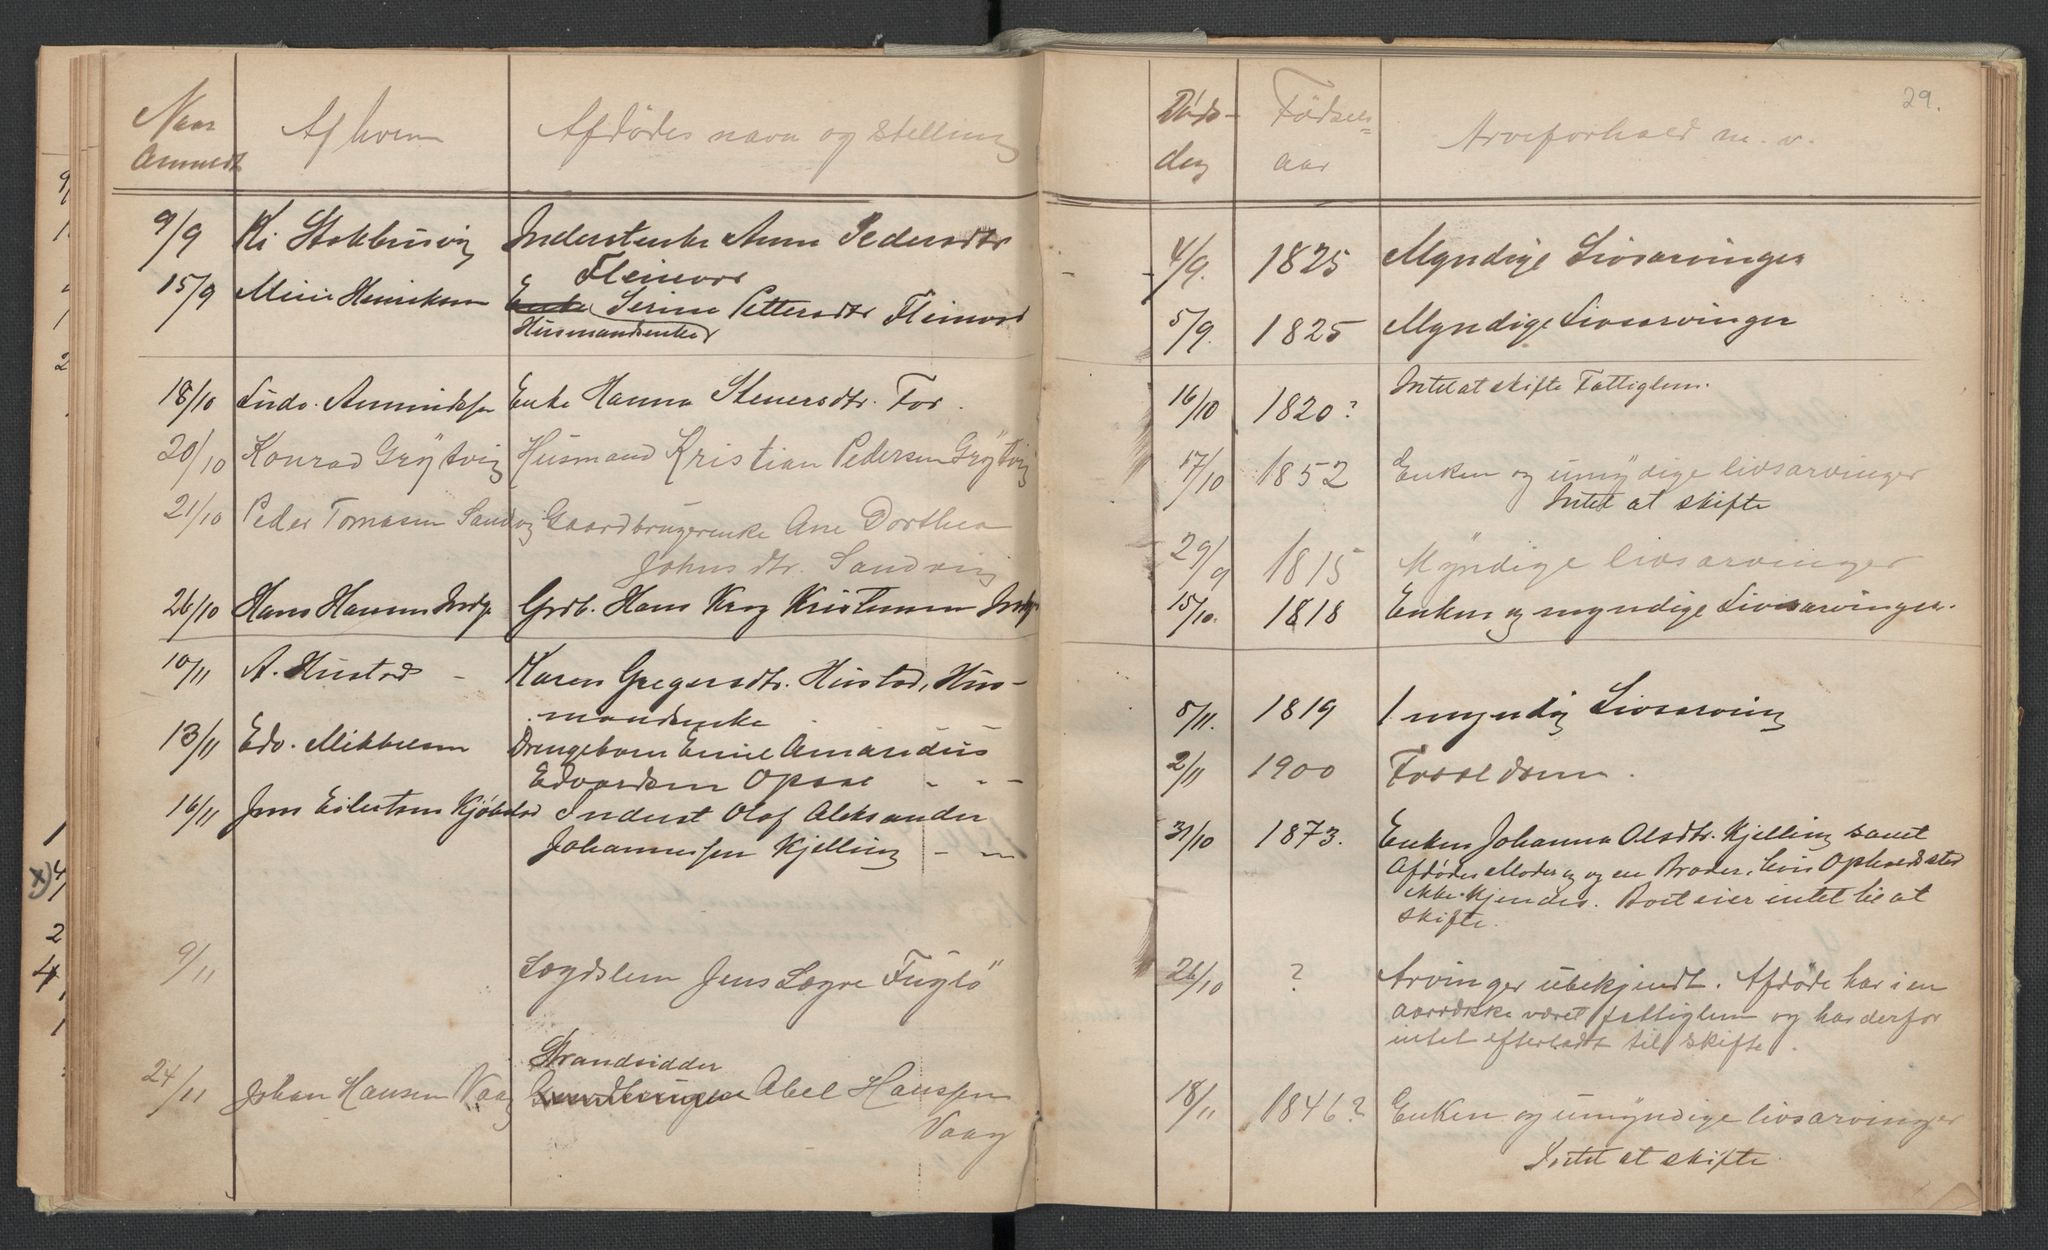 29.
Naar Anmeldt | Af hvem | Afdødes navn og Stilling | Døds- dag | Fødsels- aar | Arveforhold m. v.
9/9 | Kr Stokkesvig | Inderstenke Anne Pedersdtr | 4/9. | 1825 | Myndige Livsarvinger
Fleinvær
15/9 | Henriksen | Enke Serine Pettersdtr Fleinvær | 5/9. | 1825 | Myndige Livsarvinger
Husmandsenke
18/10 | Ludv. | Enke Hanna Steuersdtr. For. | 16/10 | 1820? | Intet at skifte Fattiglem.
20/10 | Konrad Grÿtvig | Husmand Kristian Pedersen Grÿtvig | 17/10 | 1852 | Enken og umÿdige livsarvinger
Intet at skifte
21/10 | Peder Tomasen Sandvig | Gaardbrugerenke Ane Dorthea | 29/9 | 1815 | Mÿndige livsarvinger
Johnsdtr. Sandvig
26/10 | Hans Hansen Indyr | Grdb. Hans Krog Kristensen Indyr | 15/10. | 1818 | Enken og myndige Livsarvinger.
10/11 | A. Hustad - | Karen Gregersdtr. Hustad, Hus- | 5/11. | 1819 | 1 myndig Livsarving
mandsenke
13/11 | Edv. Mikkelsen | Drengebarn Emil Amandus | 2/11 | 1900 | Forældrene.
Edvardsen Opsal - - -
16/11 | Jens Eilertsen Kjøbstad | Inderst Olaf Aleksander | 31/10 | 1873. | Enken Johanna Olsdtr. Kjelling samt
Johannessen Kjelling - - | Afdødes Moder og en Broder, hvis Opholdssted
ikke kjendes. Boet eier intet til at
skifte.
9/11 | Lægdslem Jens Lægre Fuglö | 26/10 | ? | Arvinger ubekjendt. Afdøde har i en
aarrække været fattiglem og har derfor
intet efterladt til skifte.
Strandsidder
24/11 | Johan Hansen Vaag | Gaardbruger Abel Hanssen | 18/11 | 1846? | Enken og umÿndige livsarvinger
Vaag | Intet at skifte